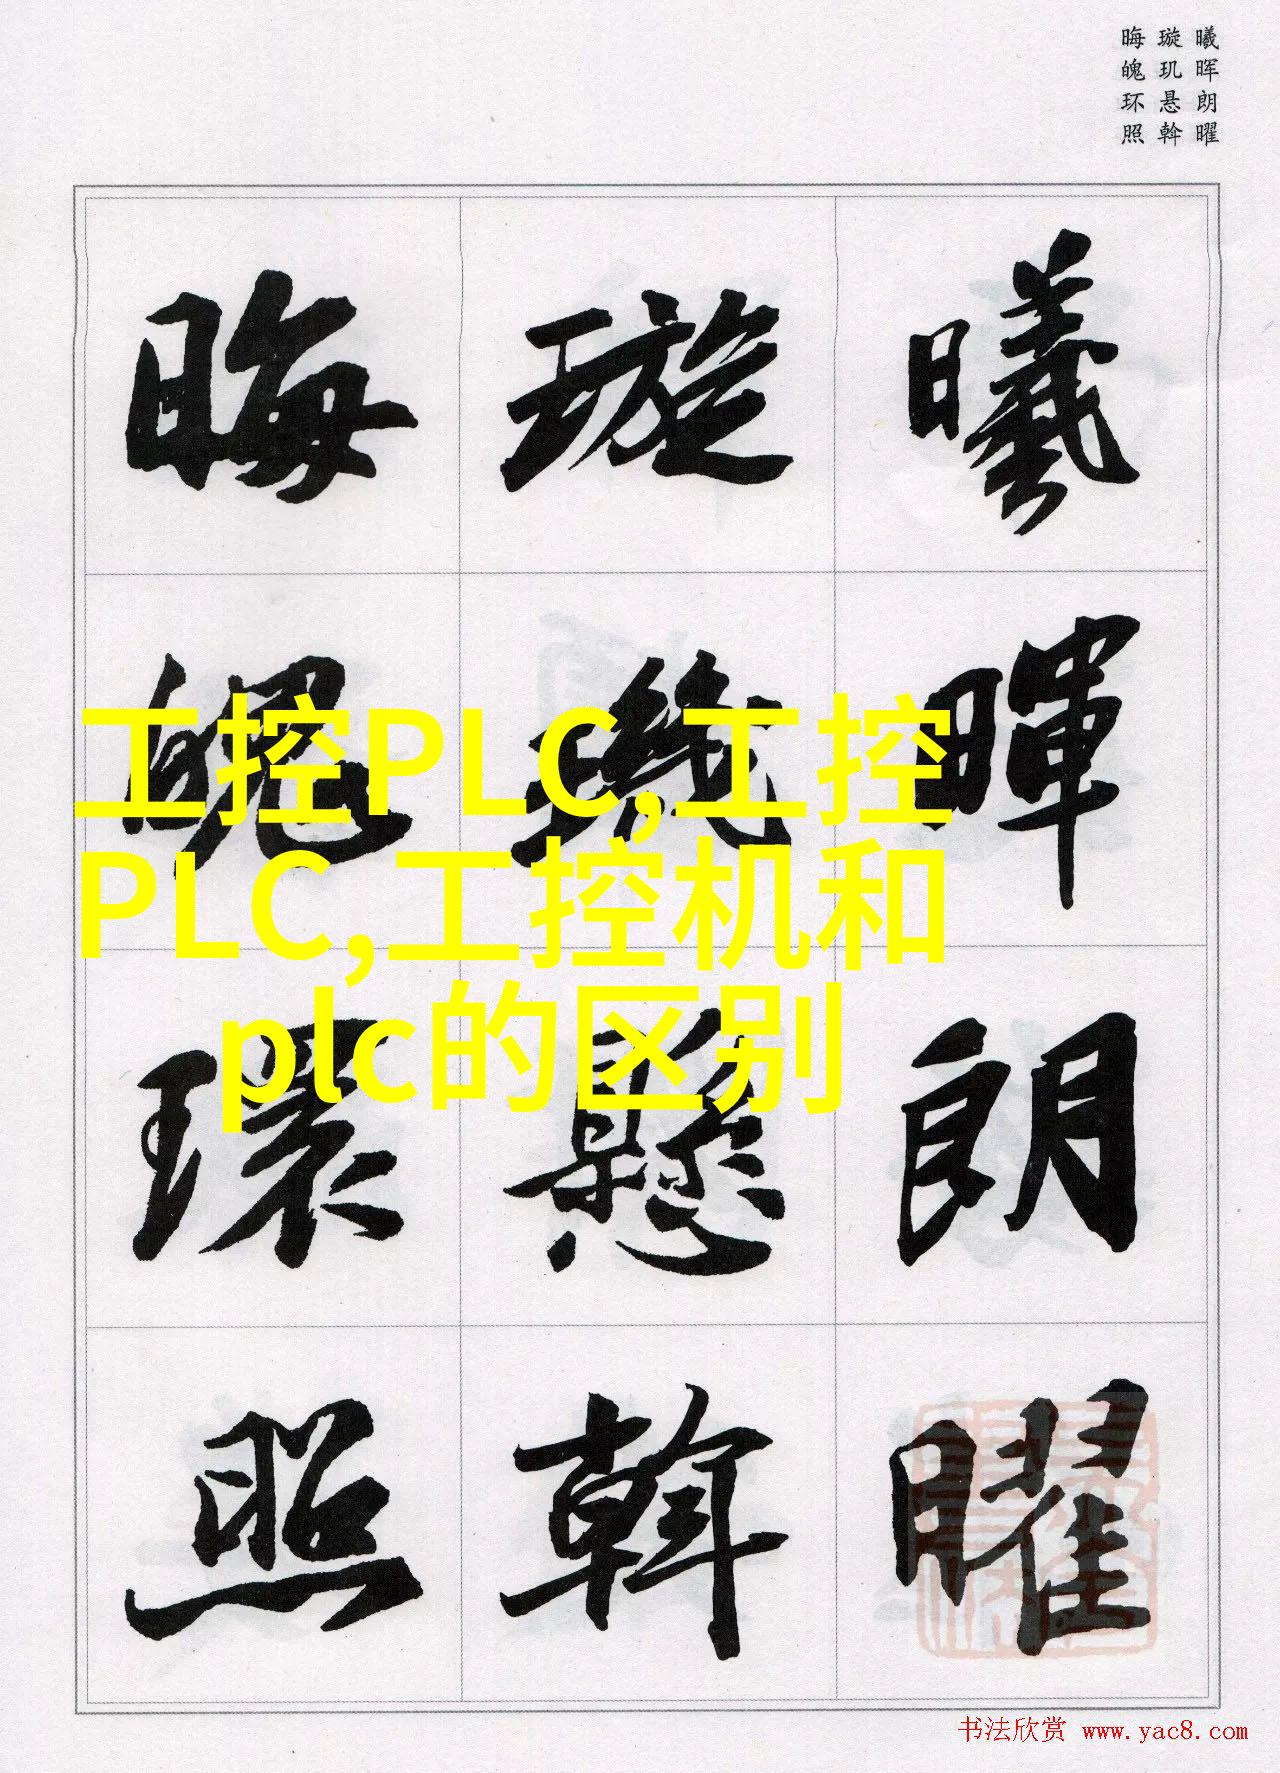 曦晖朗曜
璇玑悬斡
晦魄环照
曦暉朗曜
璇璣懸斡
晦魄環照
工控PLC,工控
PLC,工控机和
plc的区别
书法欣赏 www.yac8.com